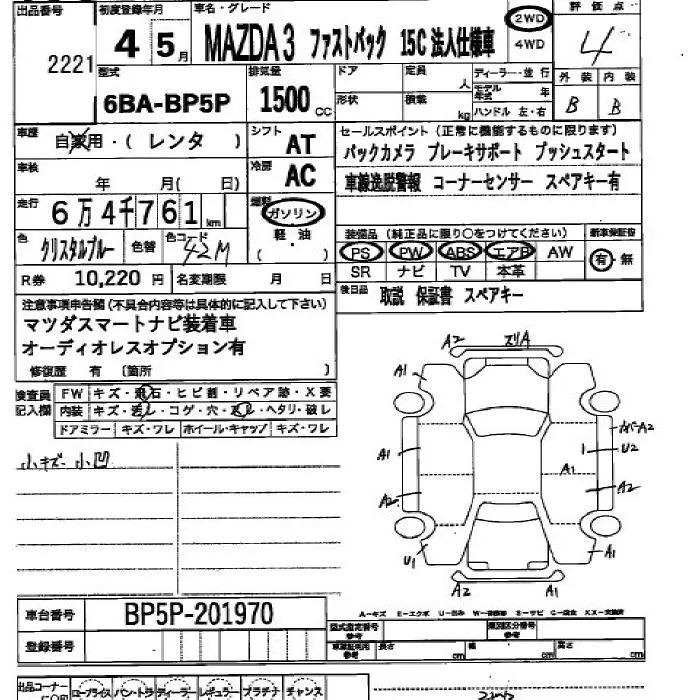 出品番号 初度登録年月 車名・グレード 2WD 評価点
2221 4 5月 MAZDA3 ファストバック 15C 法人仕様車 4WD 4
型式 排気量 ドア 定員 人 ディーラー・並行 外装 内装
6BA-BP5P 1500 CC 形状 積載 kg モデル年式 年 ハンドル 左・右 B B
車歴 自家用・(レンタ) シフト AT セールスポイント (正常に機能するものに限ります)
車検 年 月( 日) 冷房 AC バックカメラ ブレーキサポート プッシュスタート
走行 6万4千761km 燃料 ガソリン 車線逸脱警報 コーナーセンサー スペアキー有
色 クリスタルブルー 色替 色コード 42M 軽・油 ( ) 装備品 (純正品に限り○をつけてください) 新車保証書
PS PW ABS エアB AW 有・無
R券 10,220円 名変期限 月 日 SR ナビ TV 本革
注意事項申告欄(不具合内容等は具体的に記入して下さい) 後日品 取説 保証書 スペアキー
マツダスマートナビ装着車
オーディオレスオプション有
修復歴 有 (箇所 )
検査員記入欄 FW キズ・飛石・ヒビ割・リペア跡・X要
内装 キズ・汚レ・コゲ・穴・スレ・ヘタリ・破レ
ドアミラー キズ・ワレ ホイール・キャップ キズ・ワレ
小キズ 小凹
A2 スリA
A1 A1
カバーA2
A1 U2
A1
A2 A2
U1 A1
A2 A1
A-キズ E-エクボ U-凹み W-補修跡 S-サビ C-腐食 XX-交換済
車台番号 BP5P-201970
型式指定番号 参考 類別区分番号 参考
登録番号 車検証記載 参考 長さ cm 幅 cm 高さ cm
出品コーナー ロープライス バン・トラ ディーラー レギュラー プラチナ チャンス